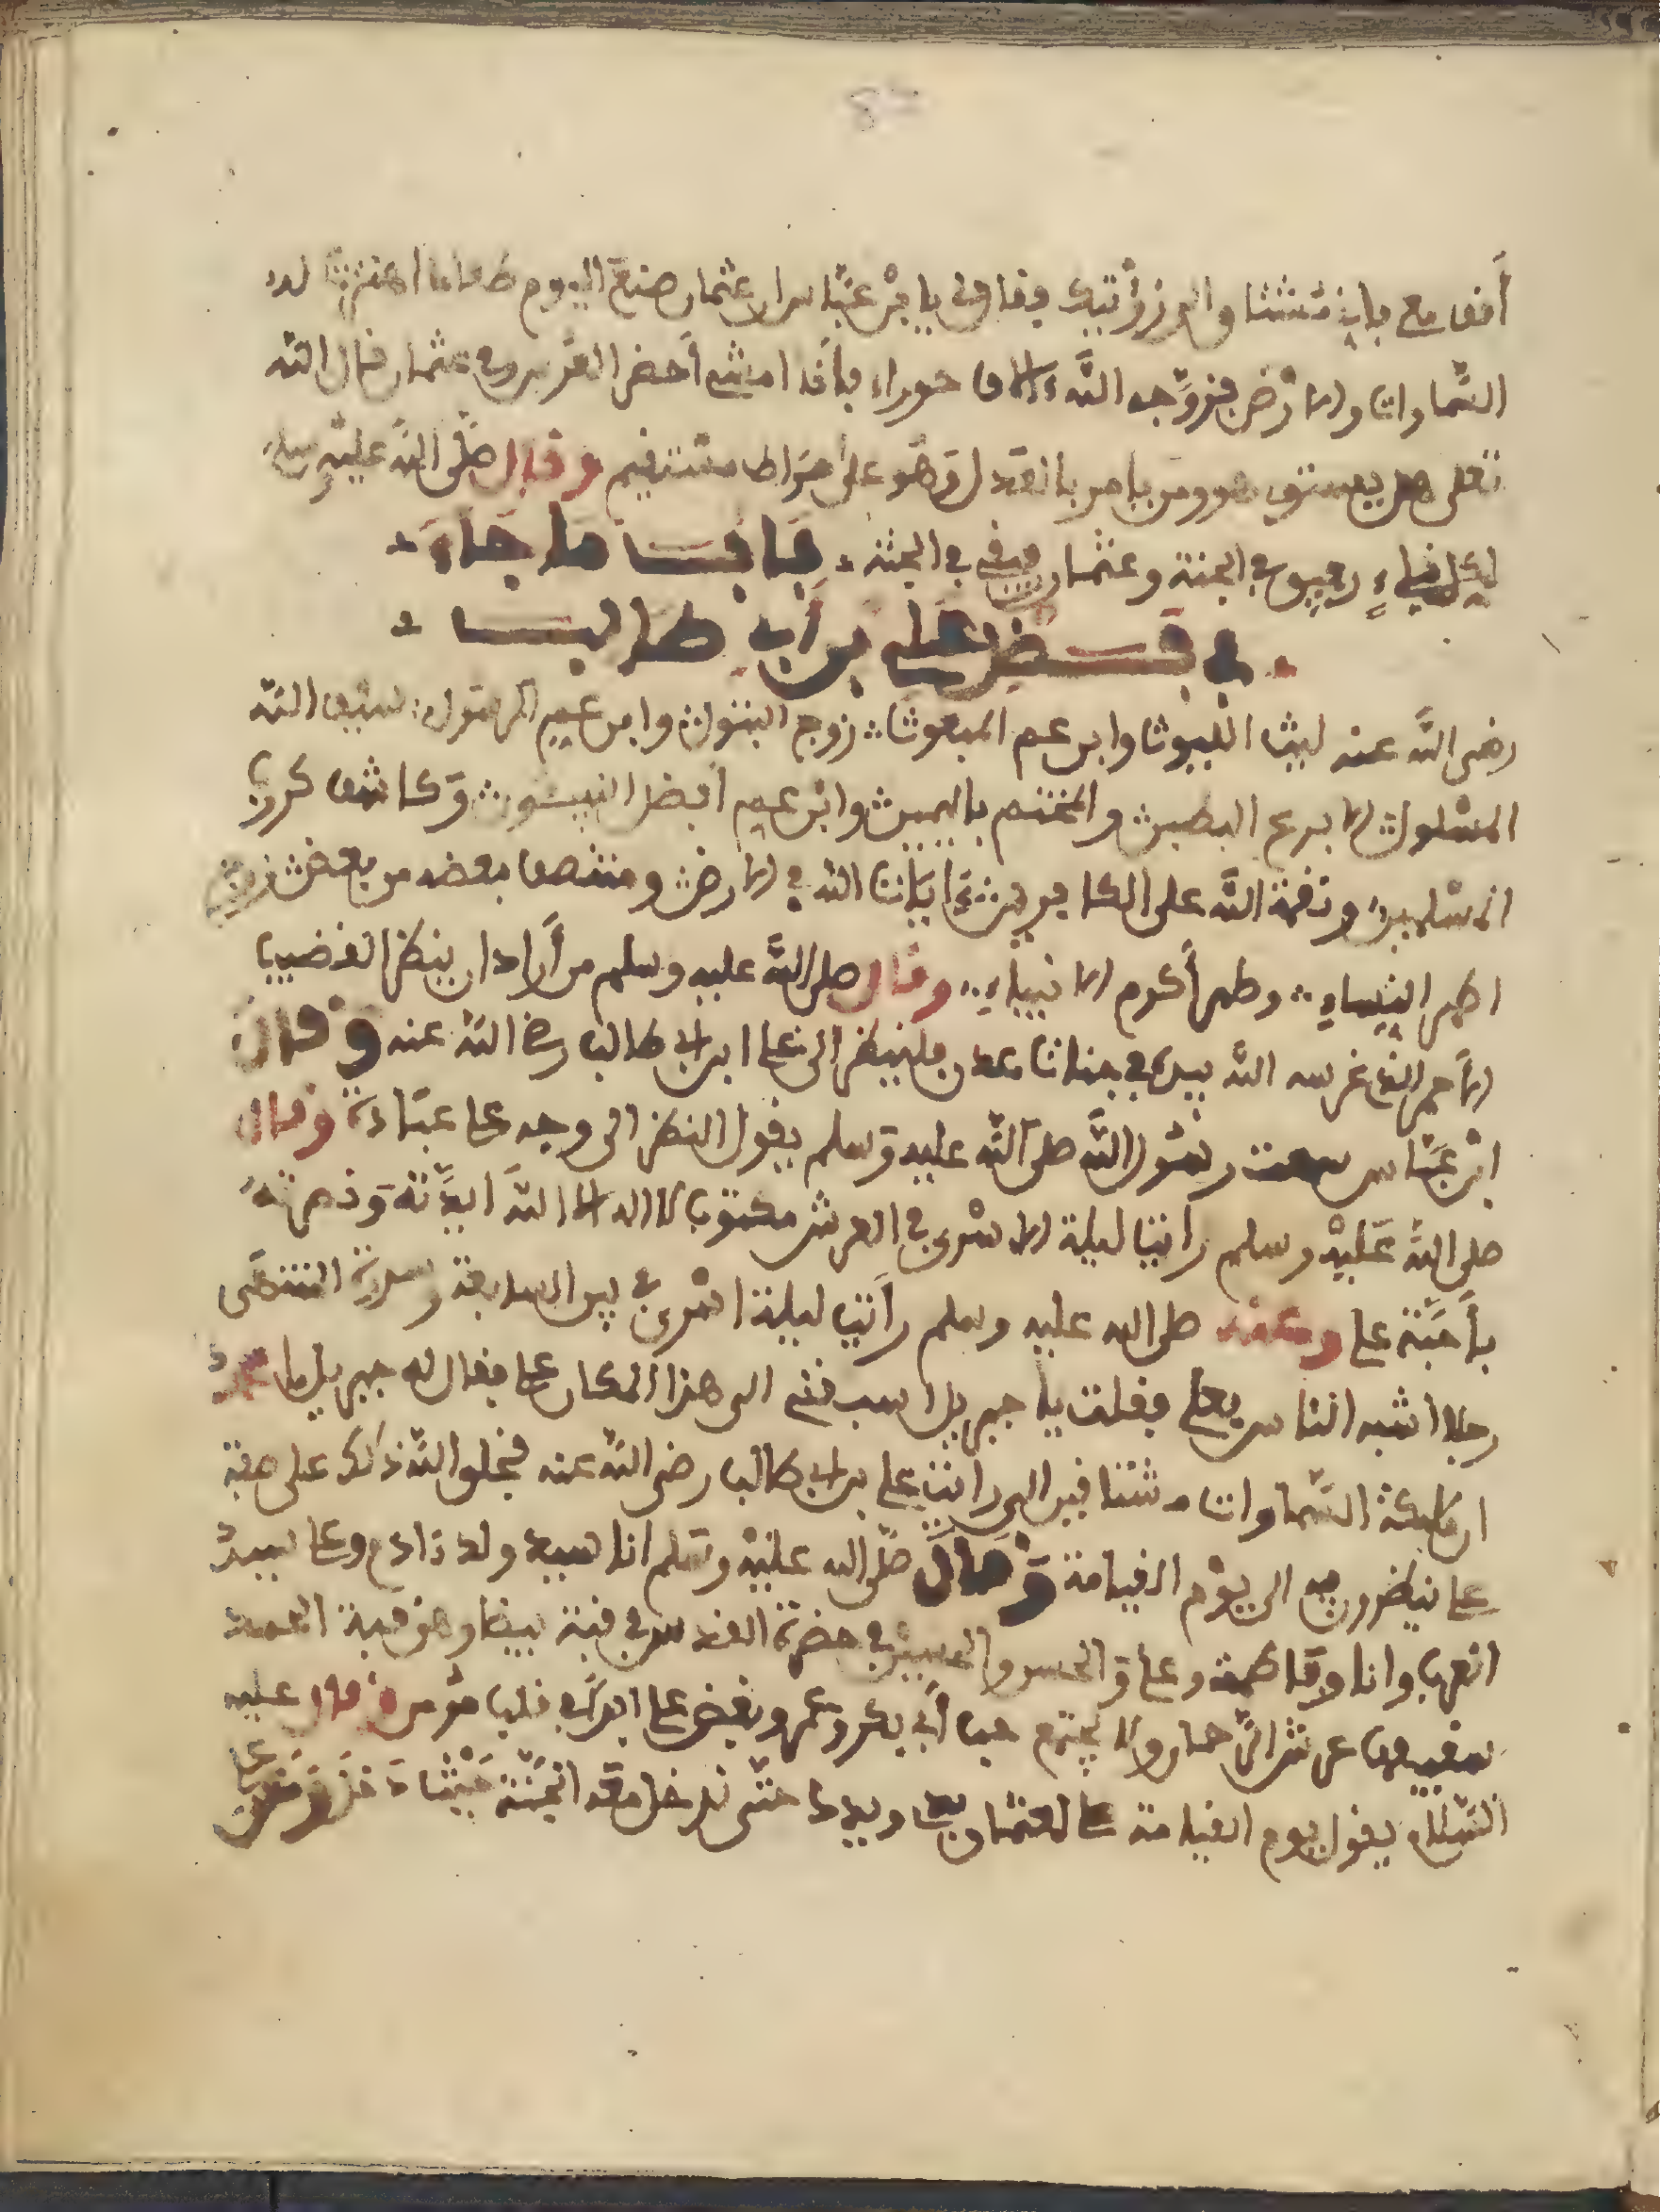 أفف مع فإنى مشتاق والى رؤيتك فقال لى يا بن عباس ان عثمان صنع اليوم طعاما اهتزت له
السماوات والارض فزوجه الله حوراء فأنا امشى أحضر العرس عثمان قال الله
تعلى هل يستوى هو ومن يامر بالعدل وهو على صراط مستقيم وقال صلى الله عليه وسلم
لكل نبى رفيق فى الجنة وعثمان رفيقى فى الجنة باب ما جاء
فى فضل على بن أبى طالب
رضى الله عنه ليث الليوث وابن عم المبعوث زوج البتول وابن عم الرسول سيف الله
المسلول الابرع البطين والمختم باليمين وابن عم أفضل النبيئين وكاشف كرب
المسلمين ونقمة الله على الكافرين الله فى الارض ومنتصف بعضه من بعض زوج
اطهر النساء وطهر أكرم الانبياء وقال صلى الله عليه وسلم من أراد ان ينظر القضيب
الأحمر الذى غرسه الله بيده فى جنات عدن فلينظر الى على ابن ابى طالب رضى الله عنه وقال
ابن عباس سمعت رسول الله صلى الله عليه وسلم يقول النظر الى وجه على عبادة وقال
صلى الله عليه وسلم رأيت ليلة الاسرى فى العرش مكتوب لا اله الا الله ايدته ونصرته
بأحبة على وعنه صلى الله عليه وسلم رأيت ليلة اسرى بى بين السابعة وسدرة المنتهى
رجلا اشبه الناس بعلى فقلت يا جبريل اسبقنى الى هذا المكان على فقال له جبريل يا محمد
ان ملائكة السماوات اشتاقوا الى رأيت على بن ابى طالب رضى الله عنه فخلق الله ذلك على صفة
على ينظرون فيه الى يوم القيامة وقال صلى الله عليه وسلم انا سيد ولد ءادم وعلى سيد
العرب وانا وفاطمة وعلى والحسن والحسين فى حضرة القدس فى قبة بيضا وهى قبة المجد
سقفها عرش الرحمان ولا يجتمع حب أبى بكر وعمر وبغض على ابدا فى قلب مؤمن وقال عليه
السلام يقول يوم القيامة على لعثمان يدى ويدك حتى تدخل معه الجنة حيث